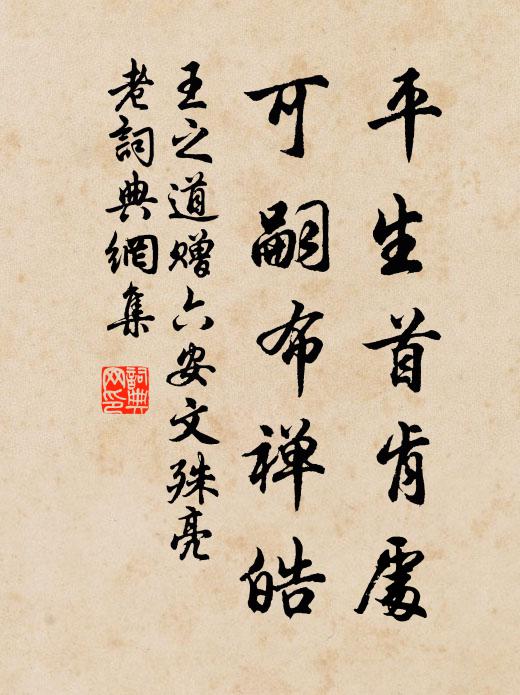 平生首肯處
可嗣布禅皓
王之道贈六安文殊亮
老詞典網集
詞典网印